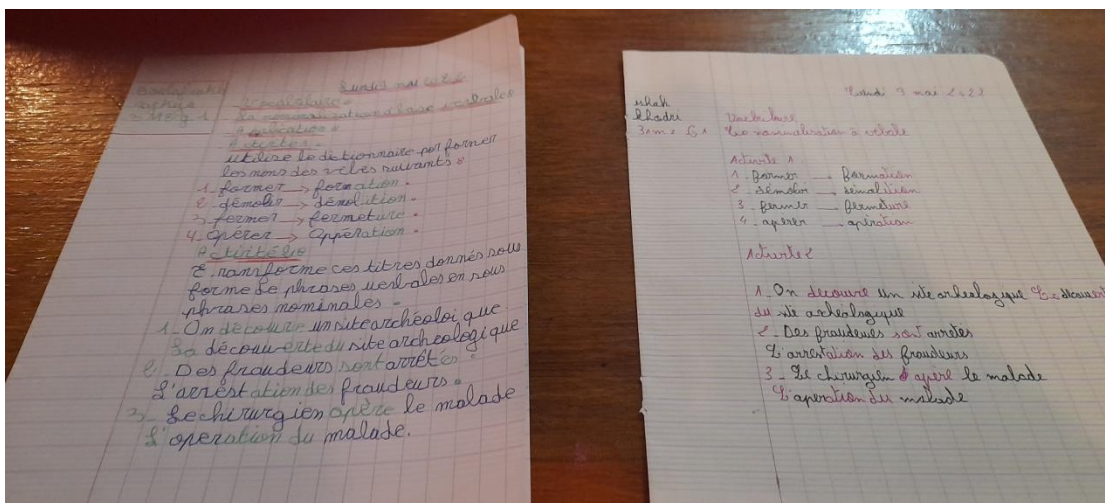 Lundi 9 mai 2022
Vocabulaire
La nominalisation à base verbales
Application
Activités
utilise le dictionnaire por former
les noms des verbes suivants :
1- former → formation.
2- démolir → démolition.
3- fermer → fermeture.
4- Opérer → Oppération.
Activité
Transforme ces titres donnés sous
forme de phrases verbales en sous
phrases nominales.
1- On découvre un site archéoloi que
La découverte du site archeologique
2- Des fraudeurs sont arrêtés.
L'arrestation des fraudeurs.
3- Le chirurgien opère le malade
L'operation du malade.
Lundi 9 mai 2022
ishak
khadri
3 am 2 G1
Vocabulaire
La nominalisation à verbale
Activité 1
1- former → formation
2- démolir → démolition
3- fermer → fermeture
4- opérer → opération
Activité 2
1- On découvre un site archéologique Le découvert
du site archéologique
2- Des fraudeurs sont arretés
L'arrestation des fraudeurs
3- Le chirurgien opére le malade
L'operation du malade